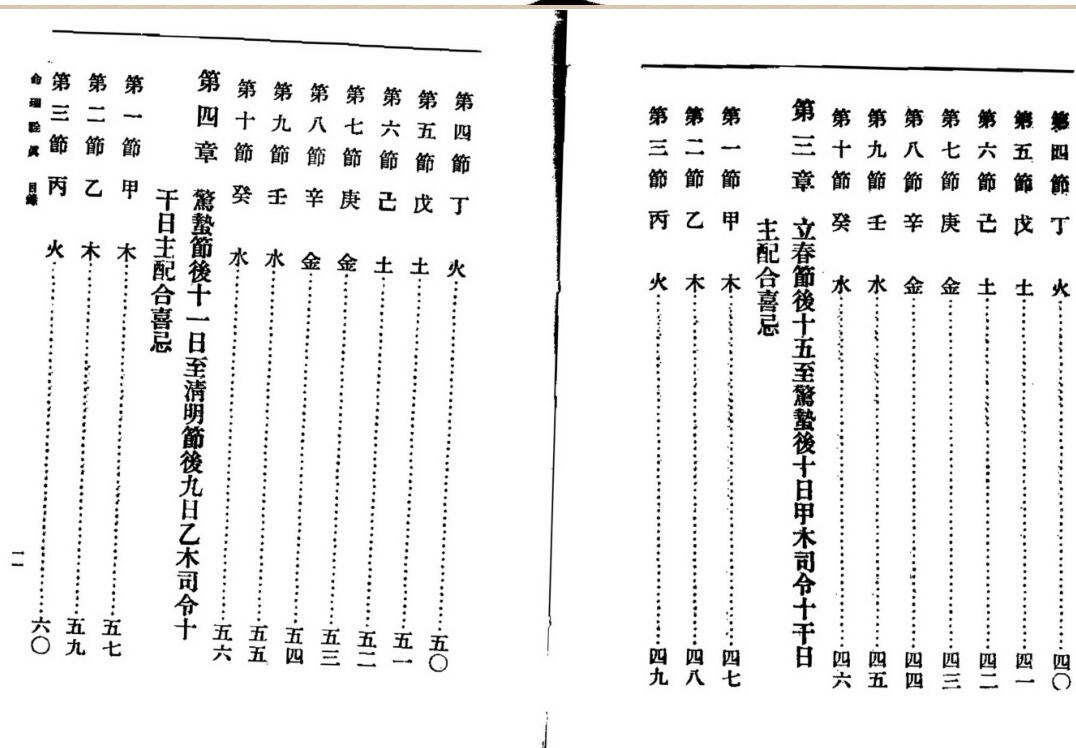 第四節 丁 火 四〇
第五節 戊 土 四一
第六節 己 土 四二
第七節 庚 金 四三
第八節 辛 金 四四
第九節 壬 水 四五
第十節 癸 水 四六
第三章 立春節後十五至驚蟄後十日甲木司令十干日
主配合喜忌
第一節 甲 木 四七
第二節 乙 木 四八
第三節 丙 火 四九
第四節 丁 火 五〇
第五節 戊 土 五一
第六節 己 土 五二
第七節 庚 金 五三
第八節 辛 金 五四
第九節 壬 水 五五
第十節 癸 水 五六
第四章 驚蟄節後十一日至清明節後九日乙木司令十
干日主配合喜忌
第一節 甲 木 五七
第二節 乙 木 五九
第三節 丙 火 六〇
命理詮眞 目錄
二